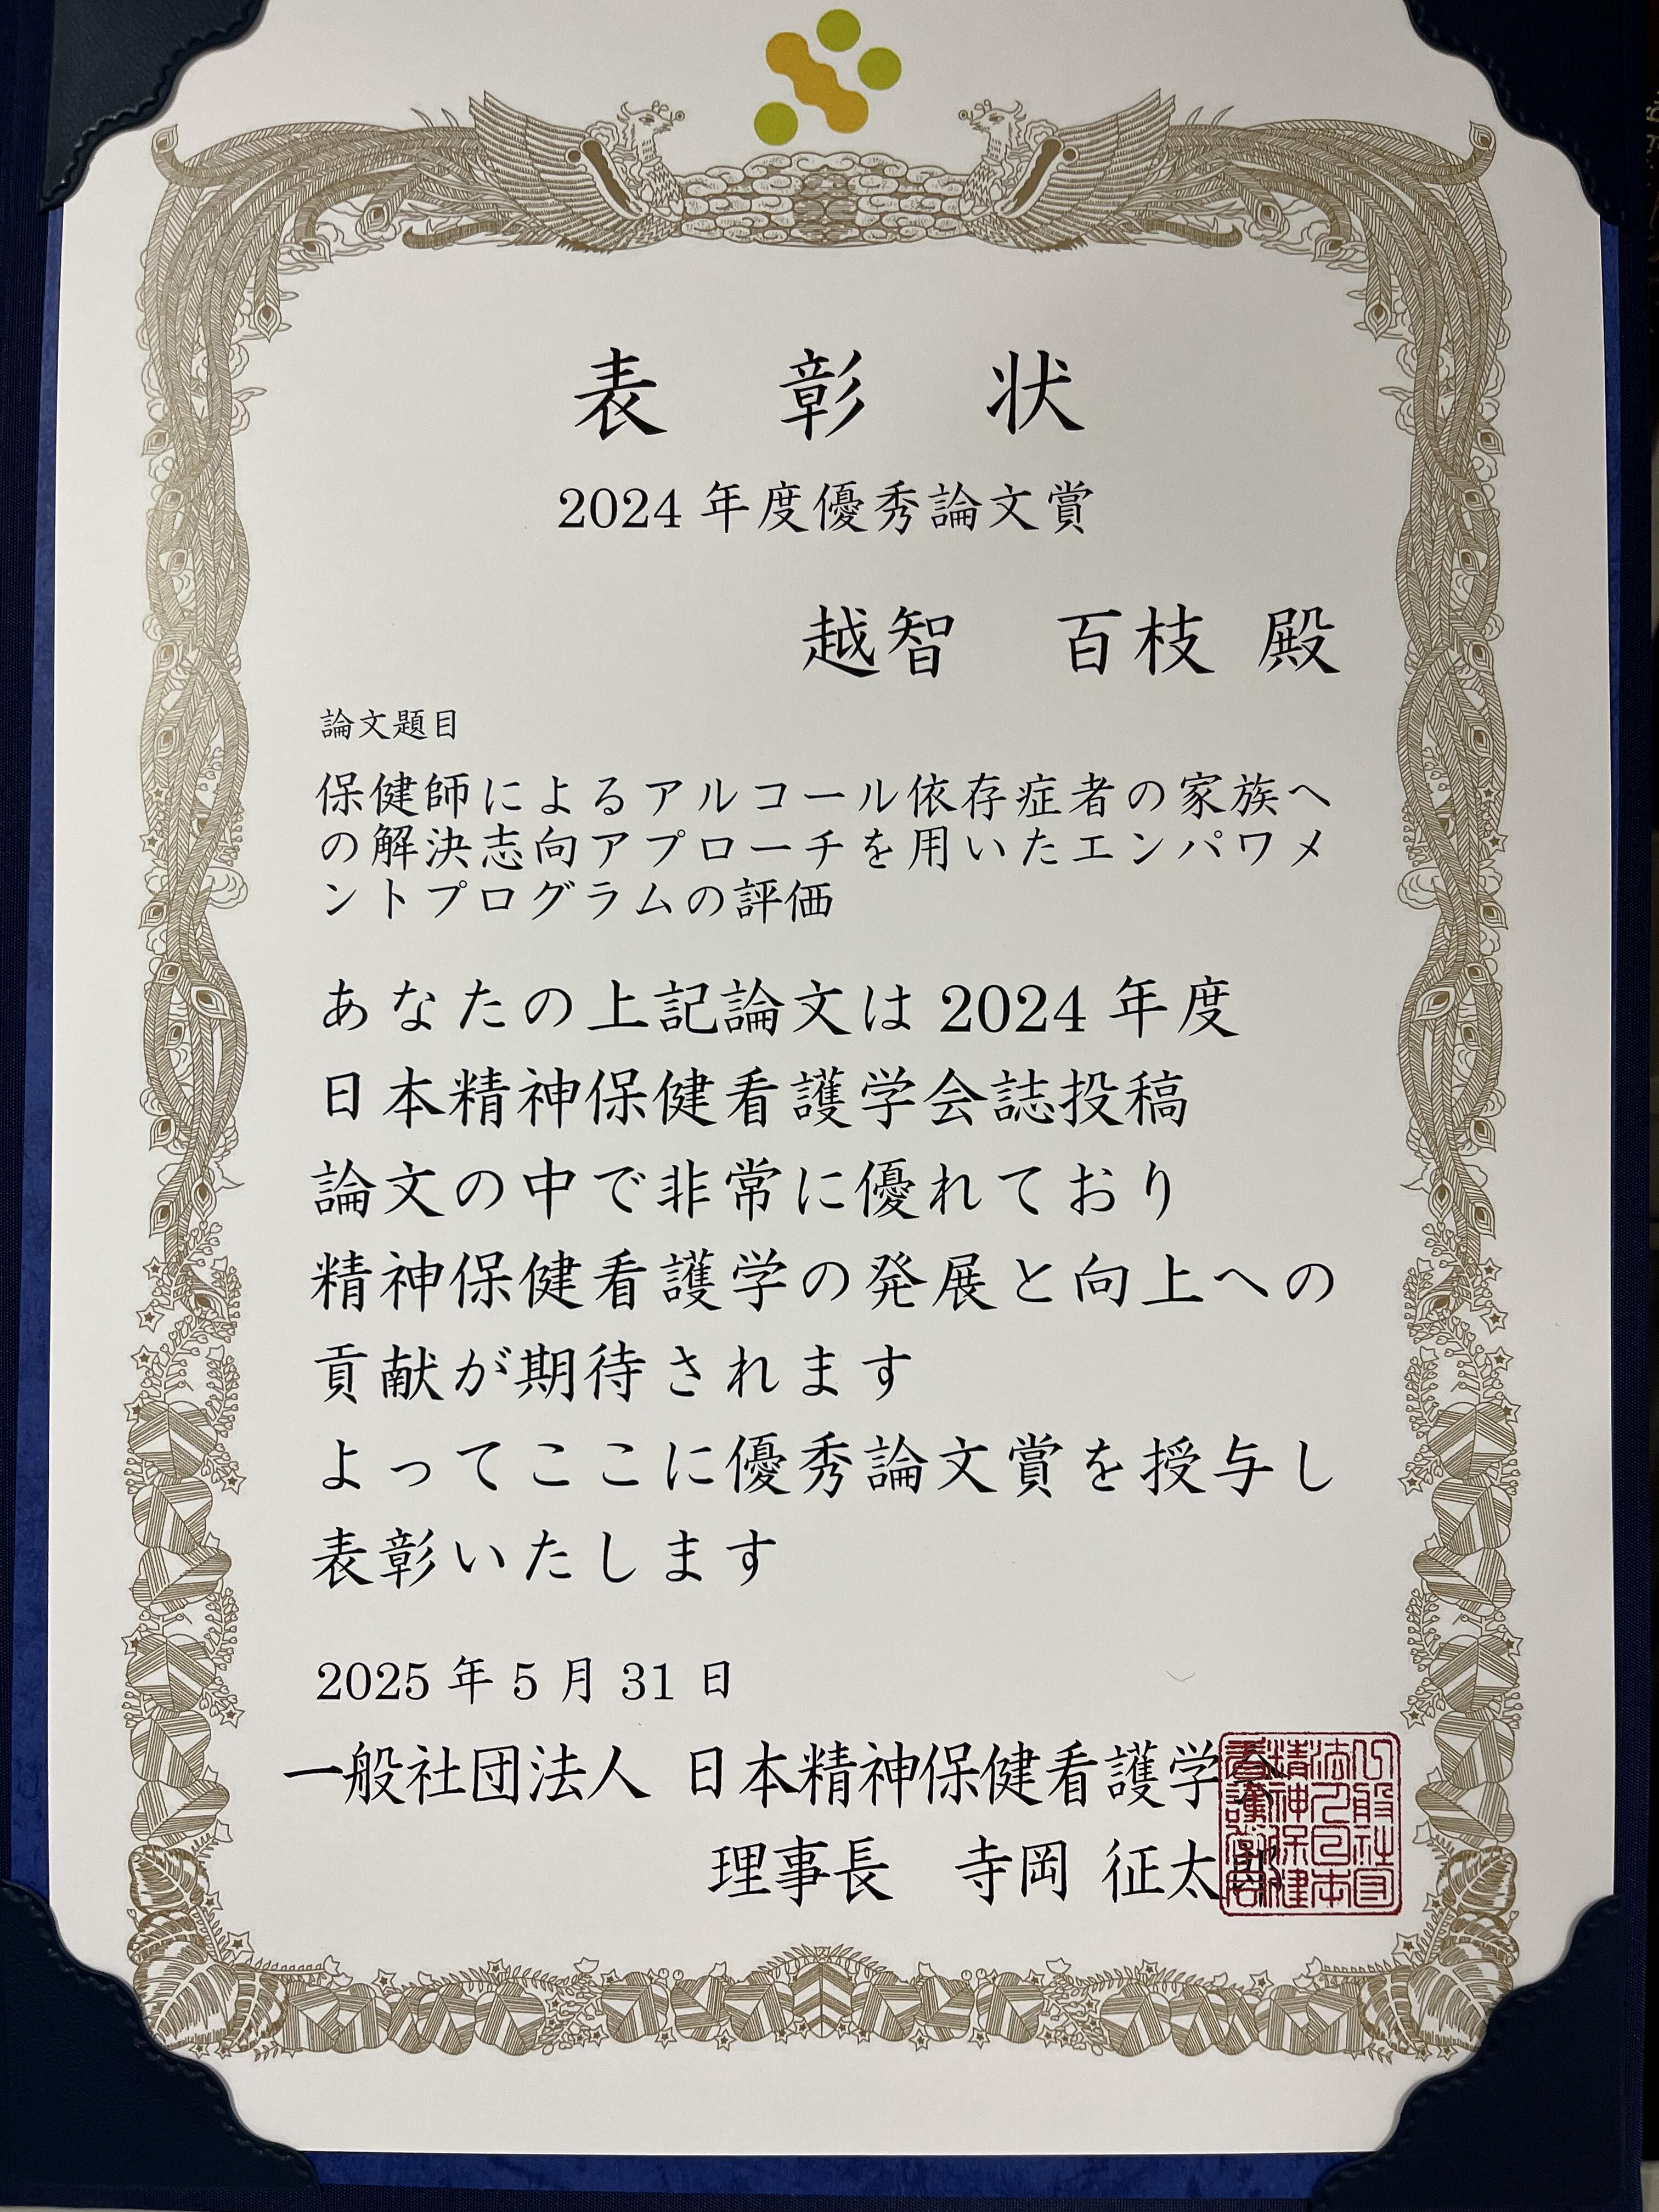 表彰状
2024年度優秀論文賞
越智 百枝 殿
論文題目
保健師によるアルコール依存症者の家族へ
の解決志向アプローチを用いたエンパワメ
ントプログラムの評価
あなたの上記論文は2024年度
日本精神保健看護学会誌投稿
論文の中で非常に優れており
精神保健看護学の発展と向上への
貢献が期待されます
よってここに優秀論文賞を授与し
表彰いたします
2025年5月31日
一般社団法人 日本精神保健看護学会
理事長 寺岡 征太郎